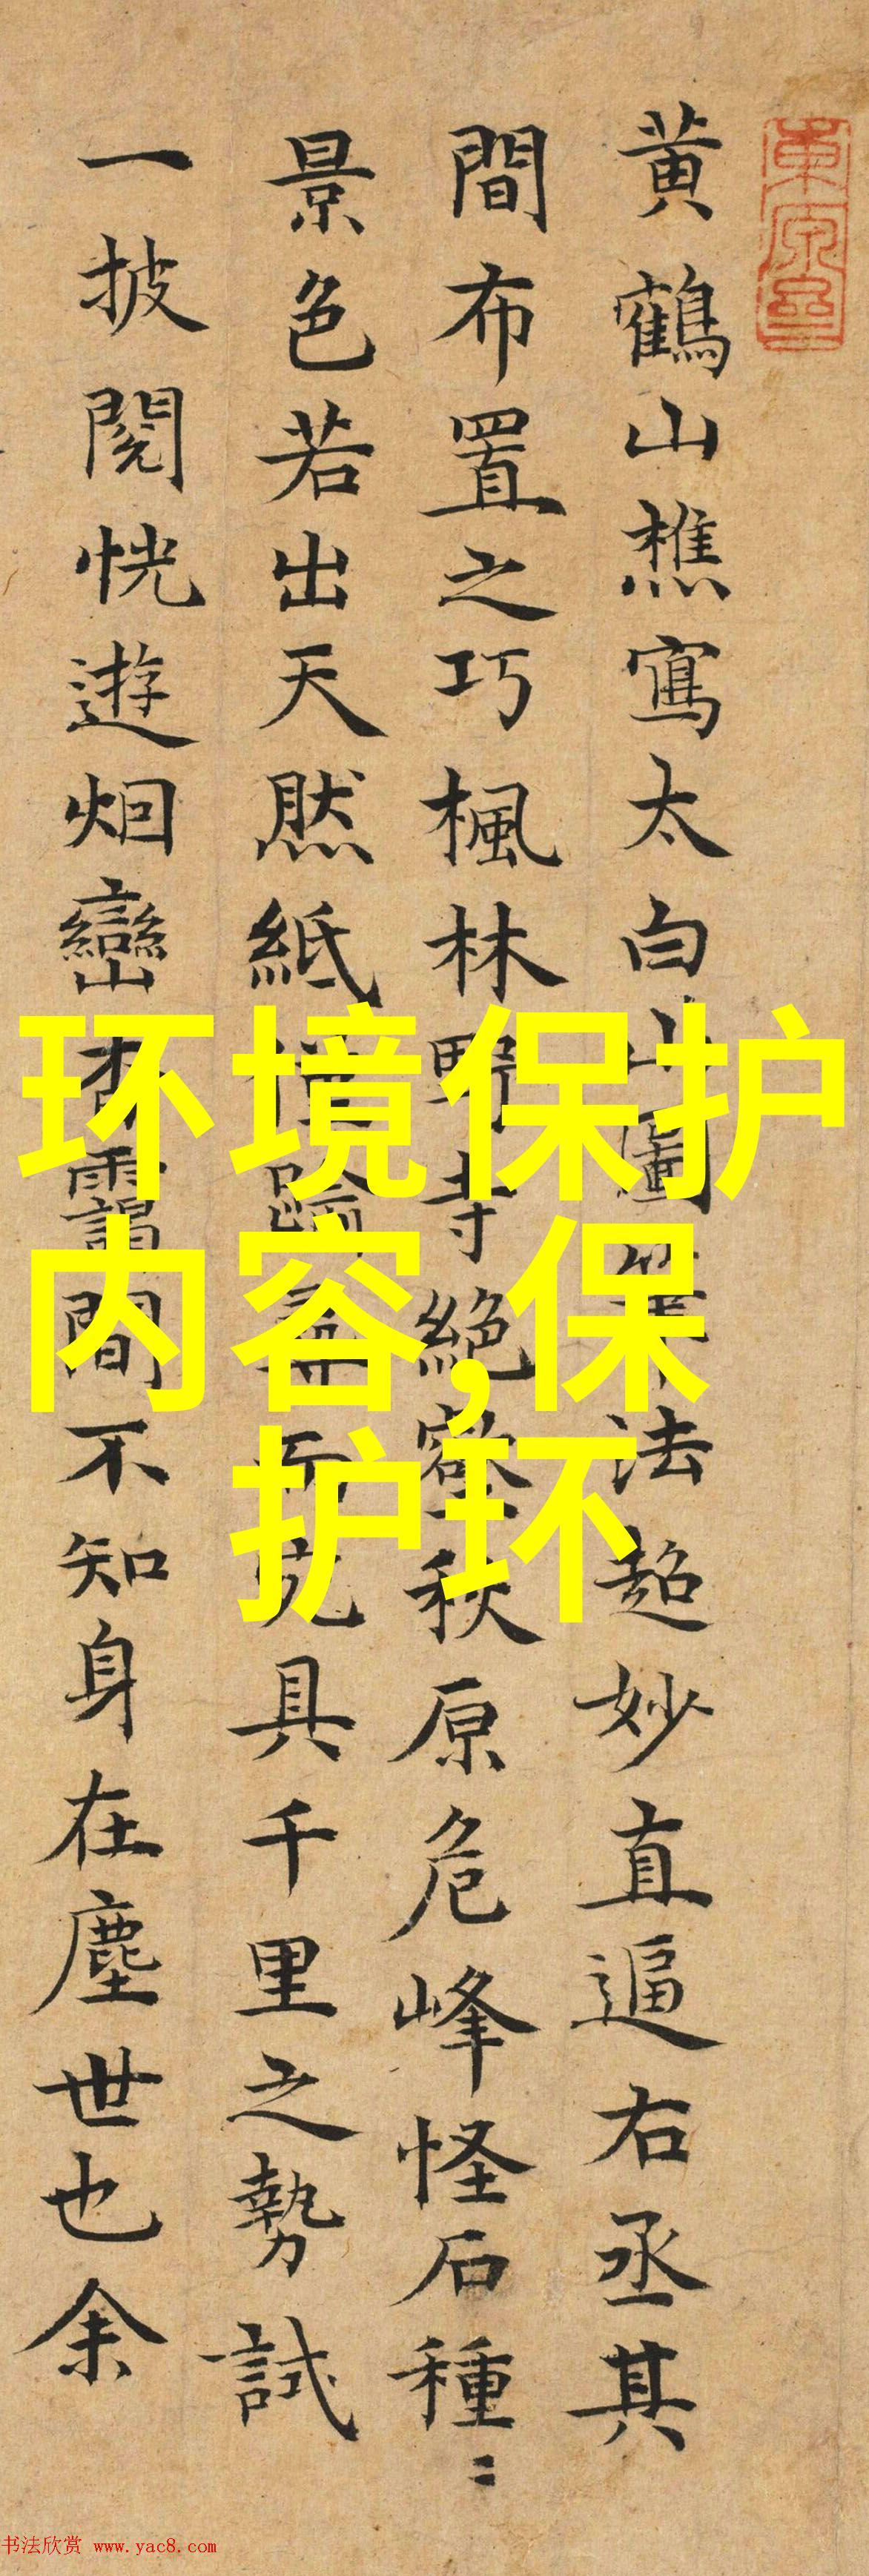 黄鶴山樵寫太白山圖筆法超妙直逼右丞其
間布置之巧楓林野寺絕壑秋原危峰怪石種〻
景色若出天然紙
具千里之勢試
一披閱恍遊烟巒杳靄間不知身在塵世也余
环境保护
内容,保
护环
书法欣赏 www.yac8.com